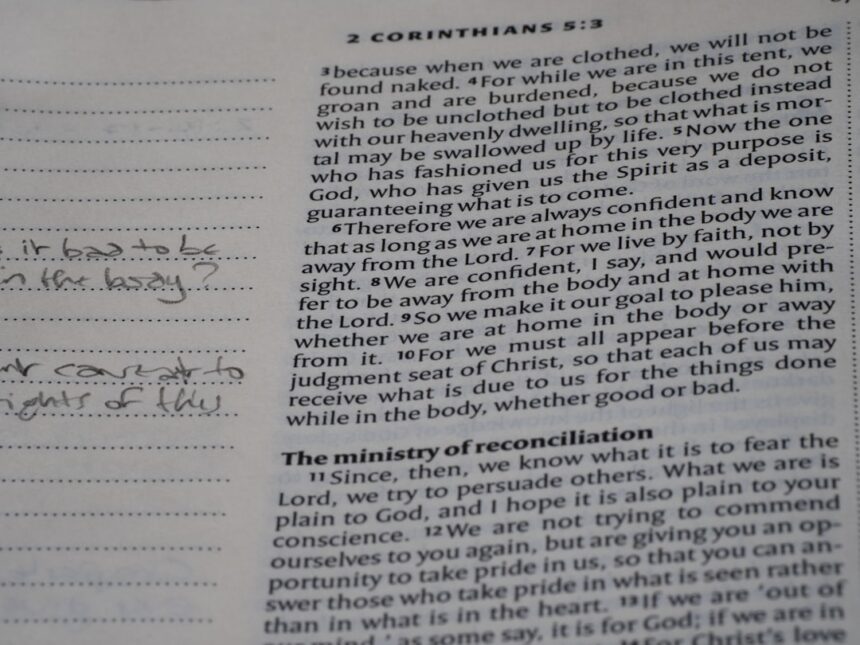 2 CORINTHIANS 5:3
3because when we are clothed, we will not be
found naked. 4For while we are in this tent, we
groan and are burdened, because we do not
wish to be unclothed but to be clothed instead
with our heavenly dwelling, so that what is mor-
tal may be swallowed up by life. 5Now the one
who has fashioned us for this very purpose is
God, who has given us the Spirit as a deposit,
guaranteeing what is to come.
6Therefore we are always confident and know
that as long as we are at home in the body we are
away from the Lord. 7For we live by faith, not by
sight. 8We are confident, I say, and would pre-
fer to be away from the body and at home with
the Lord. 9So we make it our goal to please him,
whether we are at home in the body or away
from it. 10For we must all appear before the
judgment seat of Christ, so that each of us may
receive what is due to us for the things done
while in the body, whether good or bad.
The ministry of reconciliation
11Since, then, we know what it is to fear the
Lord, we try to persuade others. What we are is
plain to God, and I hope it is also plain to your
conscience. 12We are not trying to commend
ourselves to you again, but are giving you an op-
portunity to take pride in us, so that you can an-
swer those who take pride in what is seen rather
than in what is in the heart. 13If we are 'out of
our mind,' as some say, it is for God; if we are in
14For Christ's love
it bad to be
in the body?
to
of this